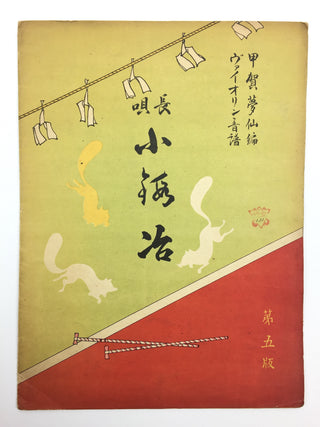 甲賀夢仙編
ヴァイオリン音譜
長唄
小鍛冶
第五版